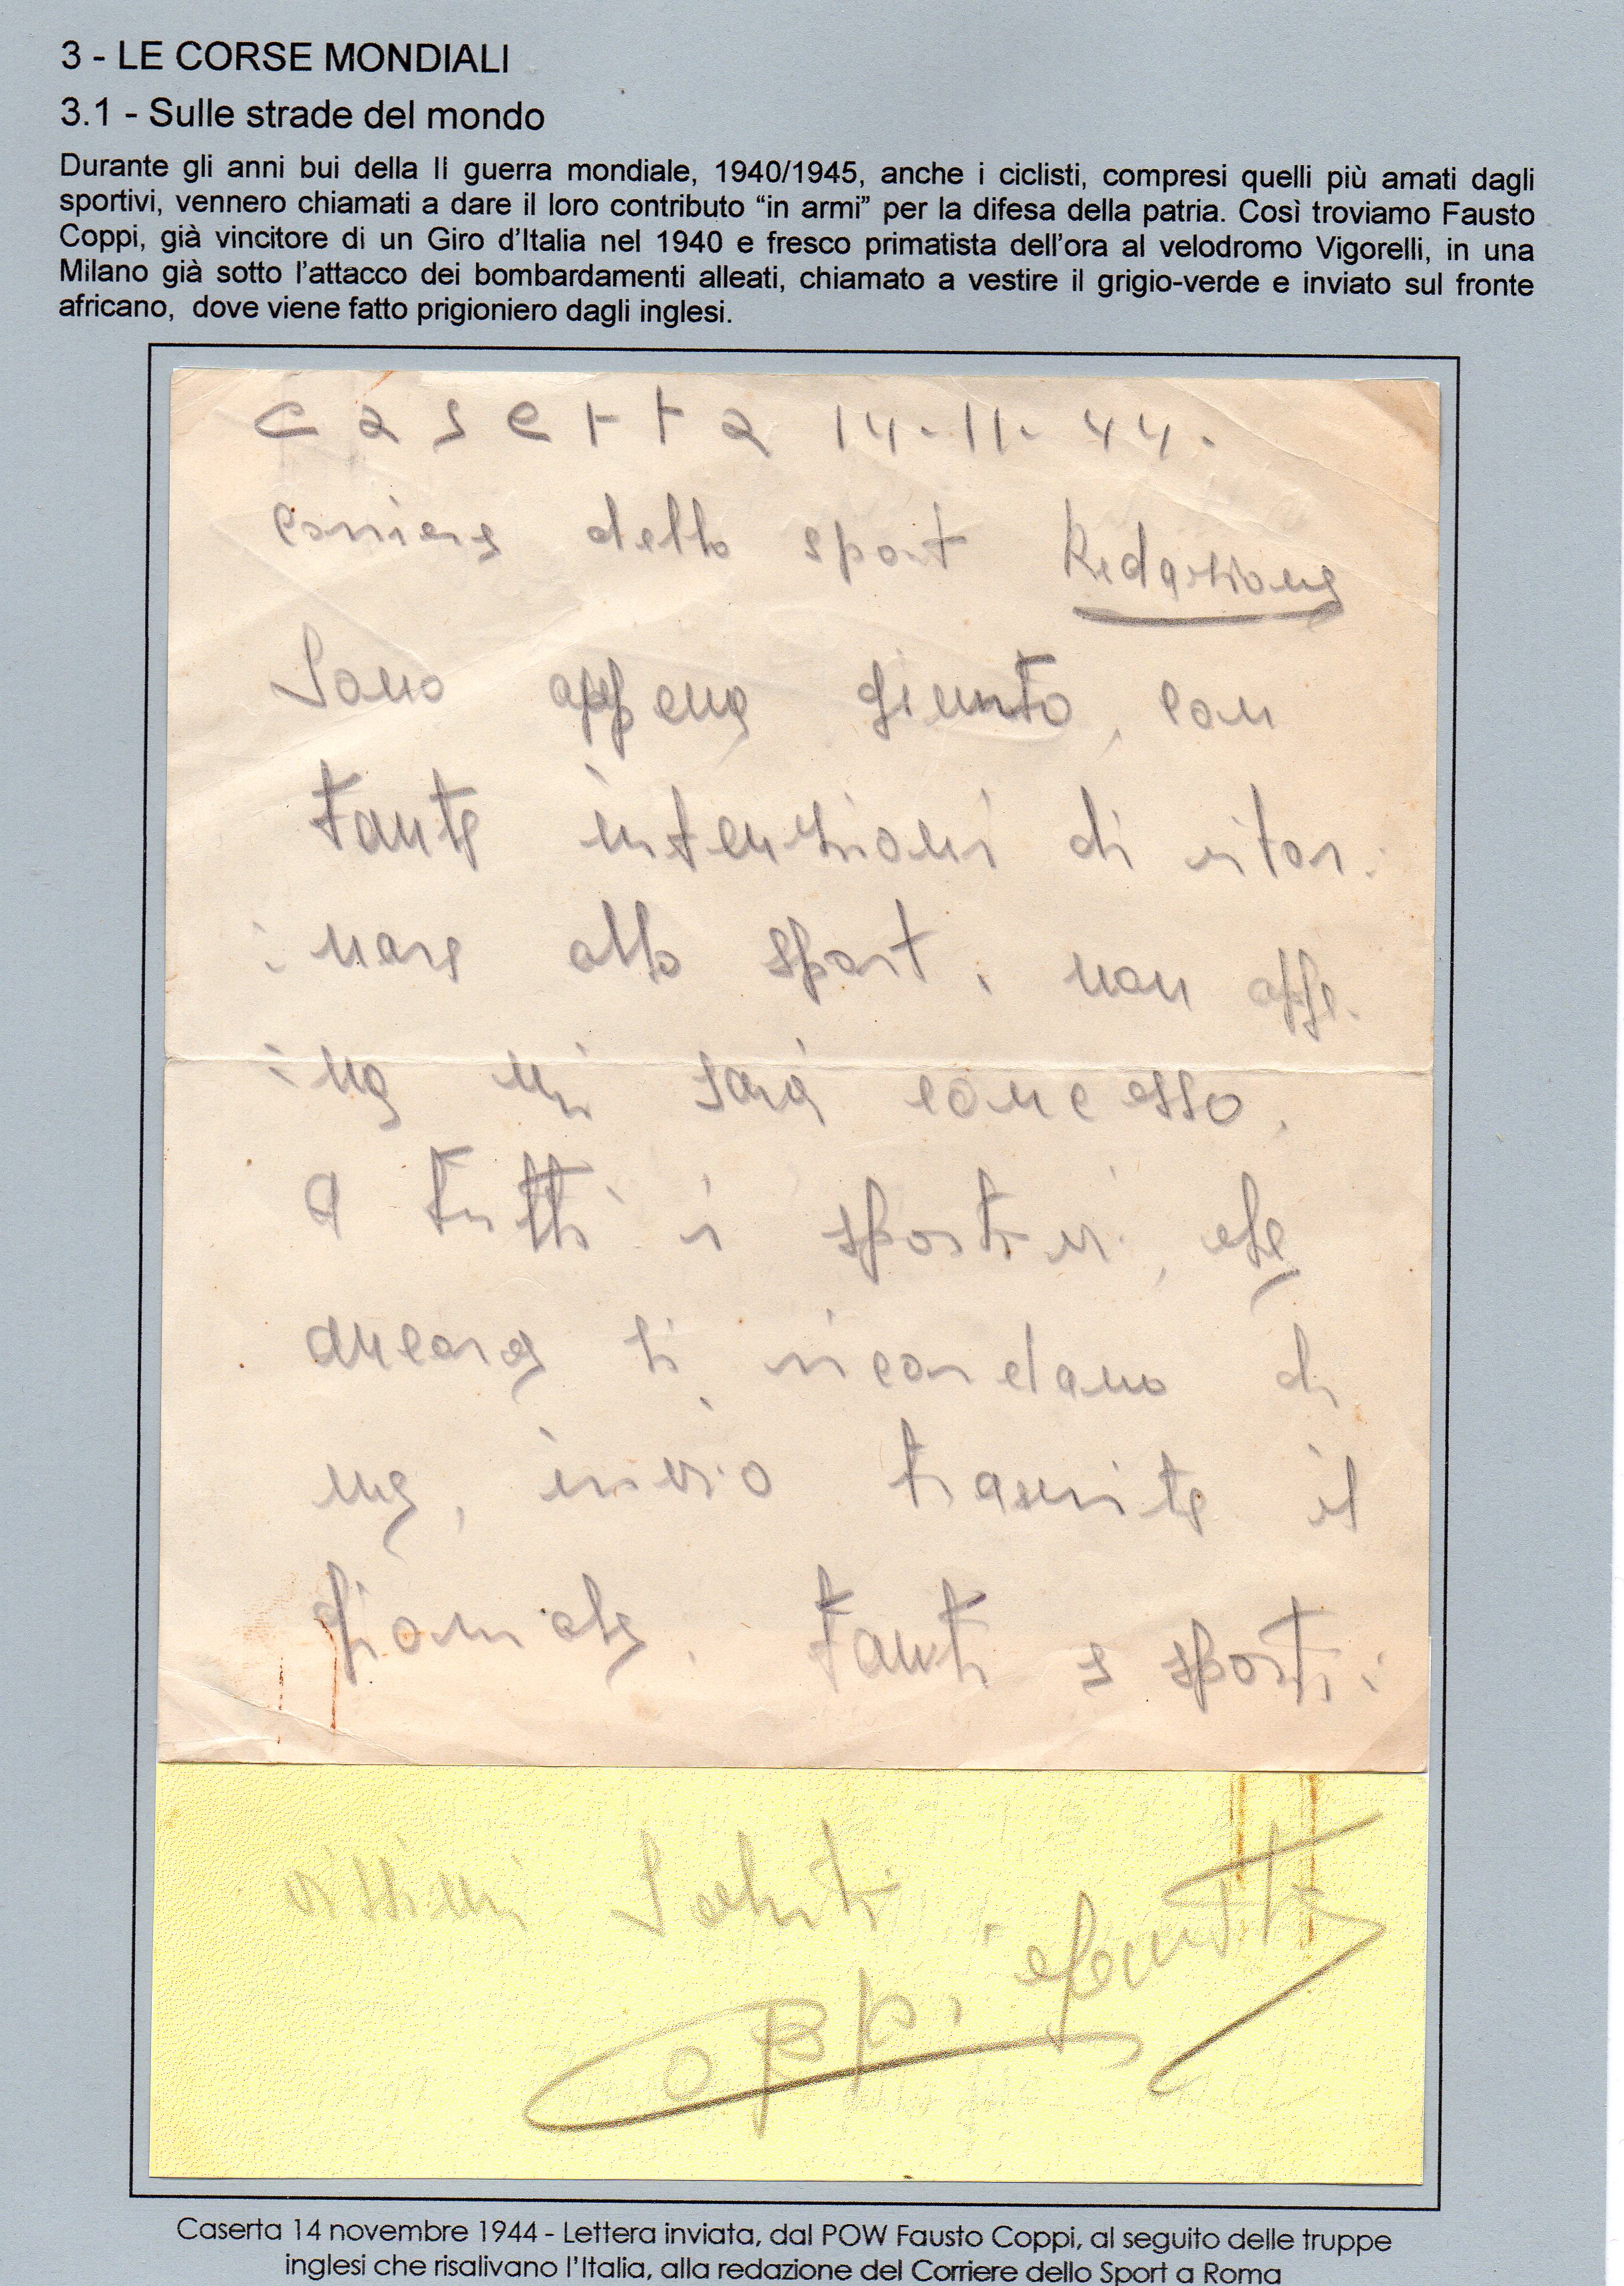 3 - LE CORSE MONDIALI
3.1 - Sulle strade del mondo
Durante gli anni bui della II guerra mondiale, 1940/1945, anche i ciclisti, compresi quelli più amati dagli
sportivi, vennero chiamati a dare il loro contributo “in armi” per la difesa della patria. Così troviamo Fausto
Coppi, già vincitore di un Giro d’Italia nel 1940 e fresco primatista dell’ora al velodromo Vigorelli, in una
Milano già sotto l’attacco dei bombardamenti alleati, chiamato a vestire il grigio-verde e inviato sul fronte
africano, dove viene fatto prigioniero dagli inglesi.
Caserta 14-11-44.
Corriere dello sport Redazione
Sono appena giunto, con
tante intenzioni di ritor:
:nare allo sport, non appe:
:na mi sarà concesso,
A tutti i sportivi, che
ancora si ricordano di
me, invio tramite il
giornale. tanti e sporti:
vissimi Saluti,
Coppi, Fausto
Caserta 14 novembre 1944 - Lettera inviata, dal POW Fausto Coppi, al seguito delle truppe
inglesi che risalivano l’Italia, alla redazione del Corriere dello Sport a Roma